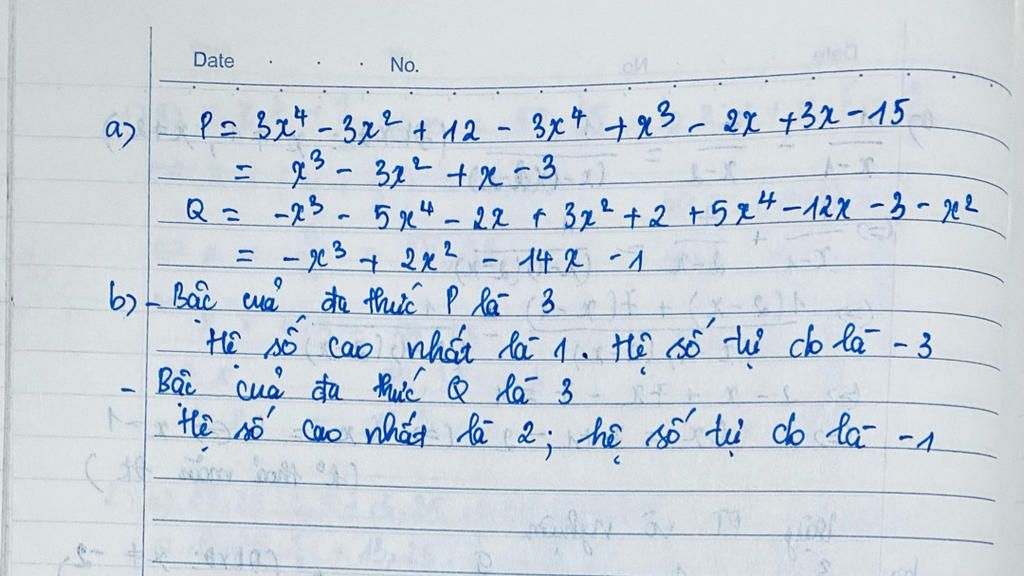 Date . . . No.
a) P = 3x⁴ - 3x² + 12 - 3x⁴ + x³ - 2x + 3x - 15
= x³ - 3x² + x - 3
Q = -x³ - 5x⁴ - 2x + 3x² + 2 + 5x⁴ - 12x - 3 - x²
= -x³ + 2x² - 14x - 1
b) - Bậc của đa thức P là 3
Hệ số cao nhất là 1. Hệ số tự do là -3
- Bậc của đa thức Q là 3
Hệ số cao nhất là 2; hệ số tự do là -1